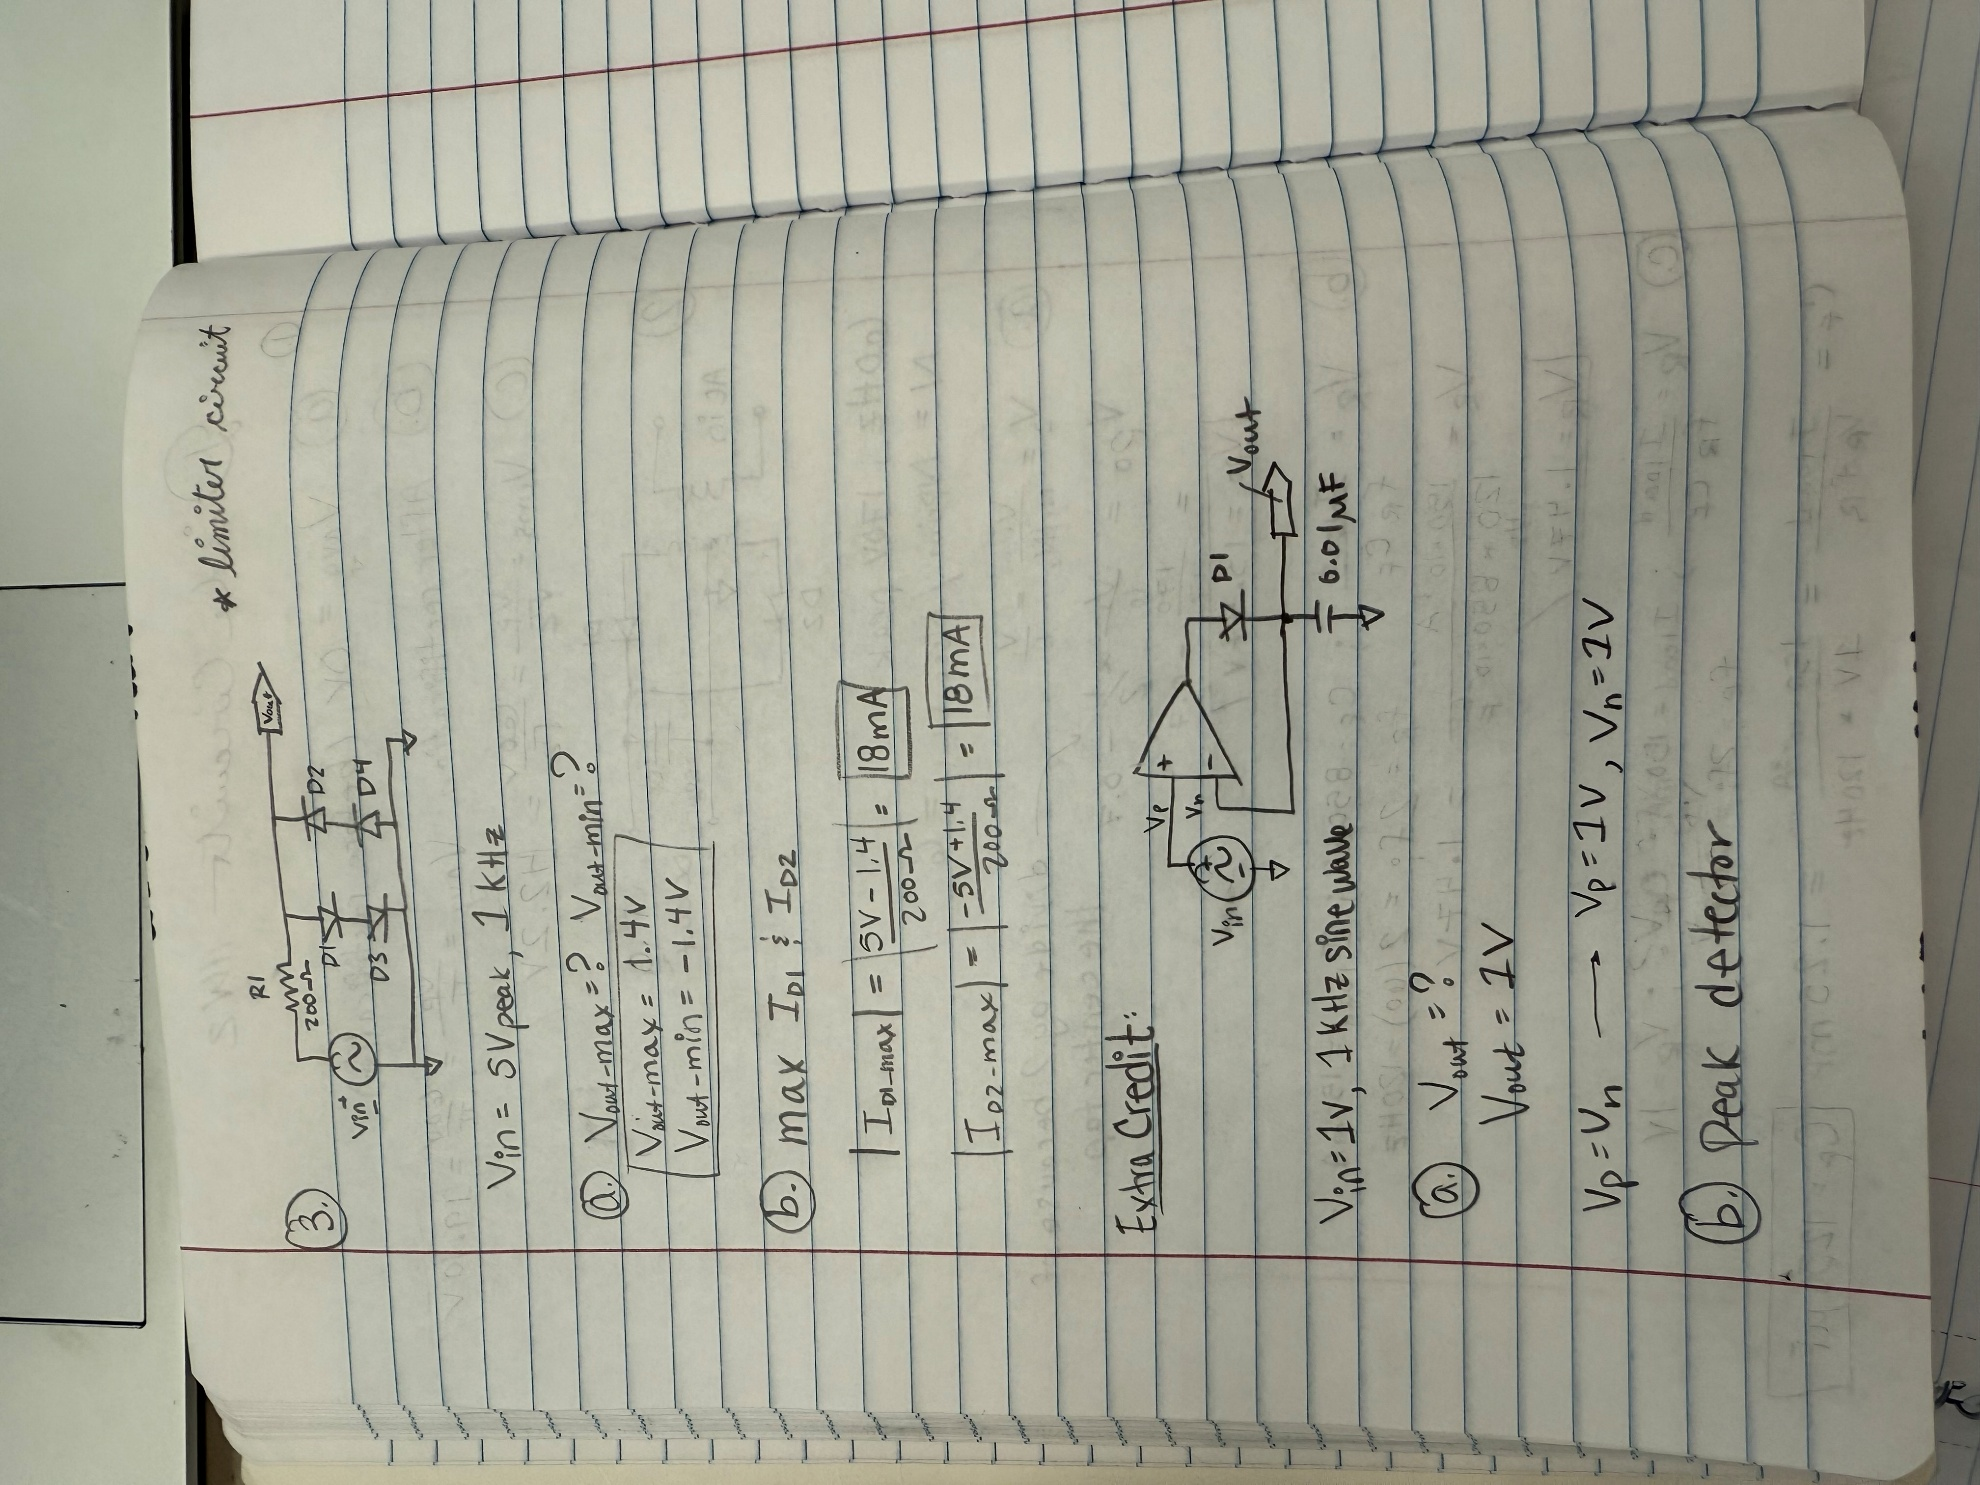 * limiter circuit
3.
R1
200Ω
Vout
D1
D2
D3
D4
Vin
+
-
Vin = 5Vpeak, 1 kHz
a. Vout-max=? Vout-min=?
Vout-max = 1.4V
Vout-min = -1.4V
b. max ID1 & ID2
|ID1-max| = |5V-1.4/200Ω| = 18mA
|ID2-max| = |-5V+1.4/200Ω| = 18mA
Extra Credit:
Vp
+
Vn
-
Vin
+
-
D1
Vout
0.01μF
Vin=1V, 1 kHz sine wave
a. Vout=?
Vout = 1V
Vp=Vn → Vp=1V, Vn=1V
b. peak detector